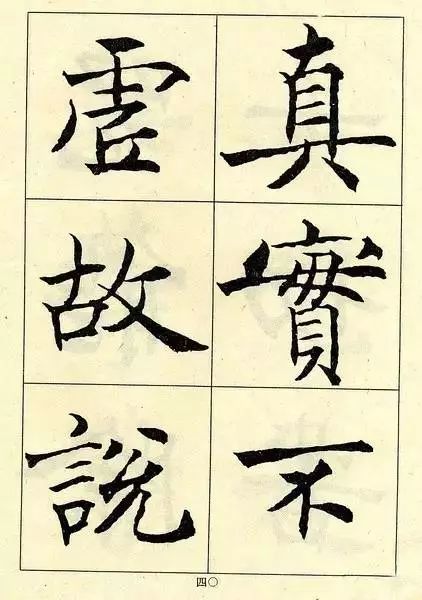 真實不
虛故說
四〇